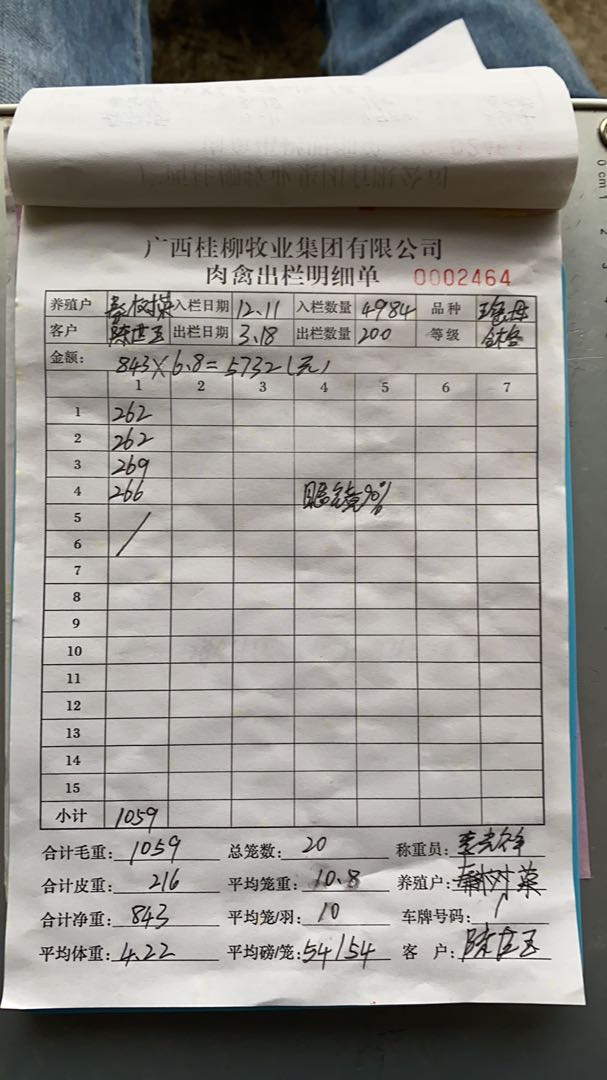 广西桂柳牧业集团有限公司
肉禽出栏明细单 0002464
养殖户 入栏日期 12.11 入栏数量 4984 品种
客户 陈世玉 出栏日期 3.18 出栏数量 200 等级
金额: 843×6.8=5732(元)
1 2 3 4 5 6 7
1 262
2 262
3 269
4 266 眼镜90%
5
6
7
8
9
10
11
12
13
14
15
小计 1059
合计毛重: 1059 总笼数: 20 称重员:
合计皮重: 216 平均笼重: 10.8 养殖户:
合计净重: 843 平均笼/羽: 10 车牌号码:
平均体重: 4.22 平均磅/笼: 54/54 客户: 陈世玉
0 cm 1 2 3